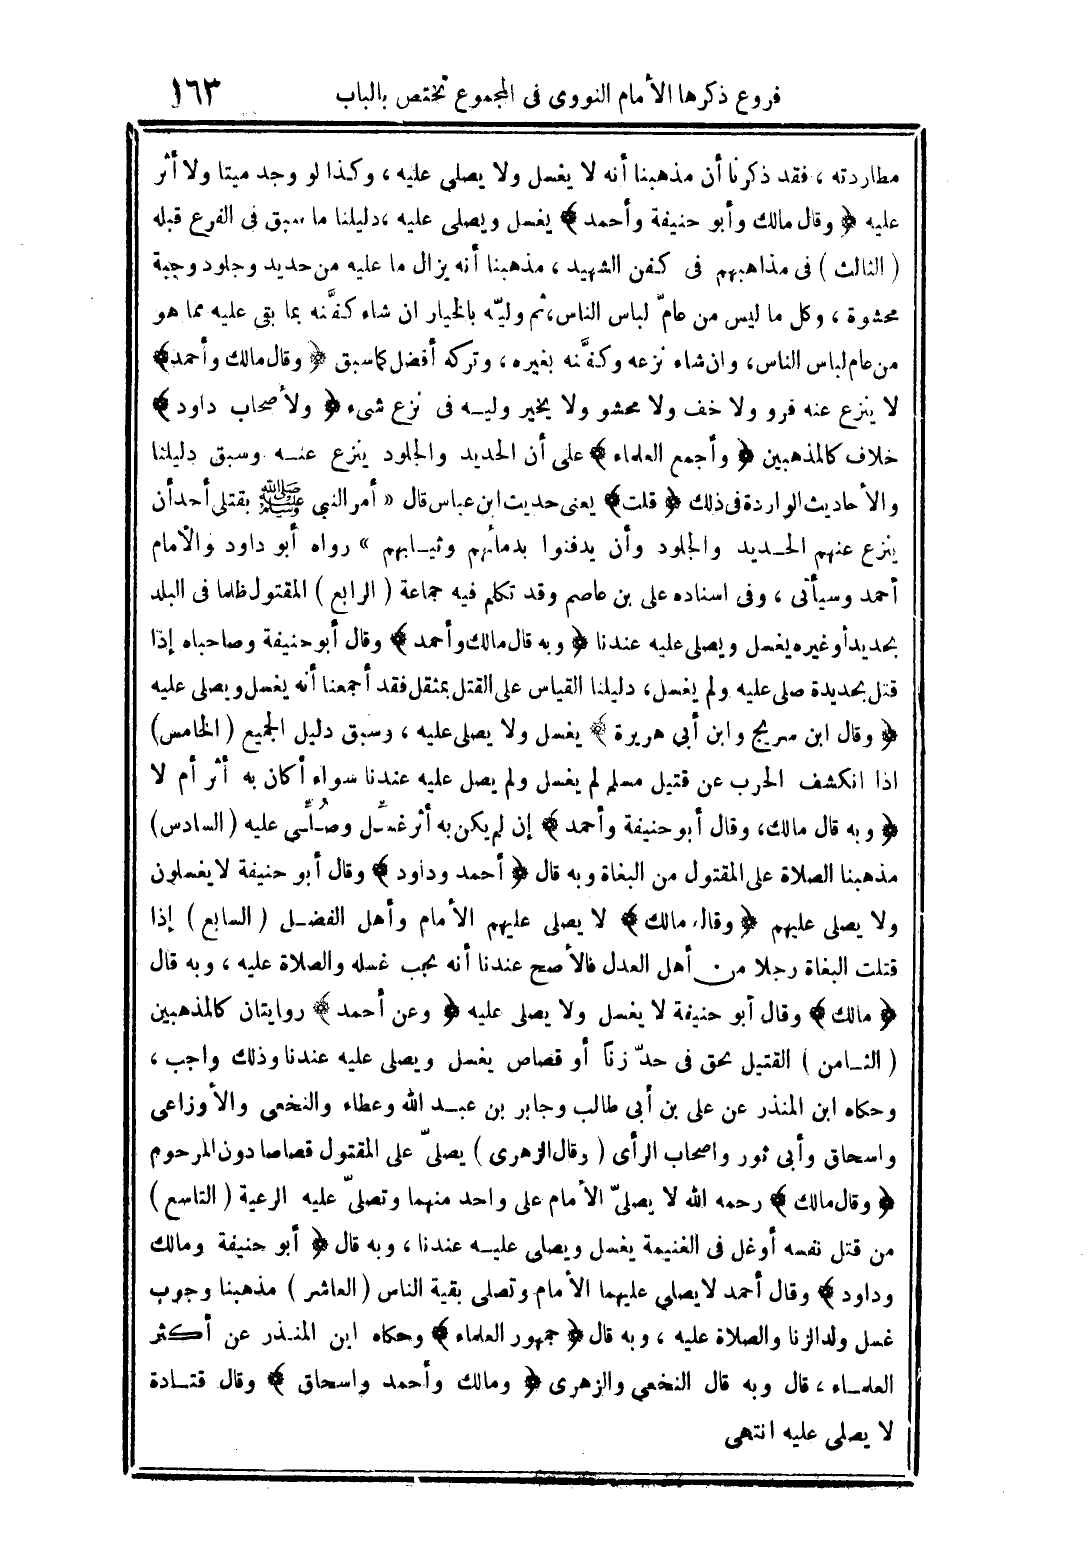 فروع ذكرها الأمام النووى فى المجموع تختص بالباب ١٦٣
مطاردته ، فقد ذكرنا أن مذهبنا أنه لا يغسل ولا يصلى عليه ، وكذا لو وجد ميتا ولا أثر
عليه ﴿ وقال مالك وأبو حنيفة وأحمد ﴾ يغسل ويصلى عليه ،دليلنا ما سبق فى الفرع قبله
( الثالث ) فى مذاهبهم فى كفن الشهيد ، مذهبنا أنه يزال ما عليه من حديد وجلود وجبة
محشوة ، وكل ما ليس من عامّ لباس الناس،ثم وليّه بالخيار ان شاء كفَّنه بما بقى عليه مما هو
من عام لباس الناس، وان شاء نزعه وكفَّنه بغيره ، وتركه أفضل كما سبق ﴿ وقال مالك وأحمد﴾
لا ينزع عنه فرو ولا خف ولا محشو ولا يخير وليـه فى نزع شىء ﴿ ولأصحاب داود ﴾
خلاف كالمذهبين ﴿ وأجمع العلماء ﴾ على أن الحديد والجلود ينزع عنـه وسبق دليلنا
والأحاديث الواردة فى ذلك ﴿ قلت﴾ يعنى حديث ابن عباس قال « أمر النبي ﷺ بقتلى أحد أن
ينزع عنهم الحـديد والجلود وأن يدفنوا بدمائهم وثيـابهم » رواه أبو داود والأمام
أحمد وسيأتى ، وفى اسناده على بن عاصم وقد تكلم فيه جماعة ( الرابع ) المقتول ظلما فى البلد
بحديد أو غيره يغسل ويصلى عليه عندنا ﴿ وبه قال مالك وأحمد ﴾ وقال أبو حنيفة وصاحباه إذا
قتل بحديدة صلى عليه ولم يغسل، دليلنا القياس على القتل بمثقل فقد أجمعنا أنه يغسل ويصلى عليه
﴿ وقال ابن سريج وابن أبى هريرة ﴾ يغسل ولا يصلى عليه ، وسبق دليل الجميع (الخامس)
اذا انكشف الحرب عن قتيل مسلم لم يغسل ولم يصل عليه عندنا سواء أكان به أثر أم لا
﴿ وبه قال مالك، وقال أبو حنيفة وأحمد ﴾ إن لم يكن به أثر غسِّـل وصُلِّـي عليه (السادس)
مذهبنا الصلاة على المقتول من البغاة وبه قال ﴿ أحمد وداود ﴾ وقال أبو حنيفة لا يغسلون
ولا يصلى عليهم ﴿ وقال مالك ﴾ لا يصلى عليهم الأمام وأهل الفضـل ( السابع ) إذا
قتلت البغاة رجلا من أهل العدل فالأصح عندنا أنه يجب غسله والصلاة عليه ، وبه قال
﴿ مالك ﴾ وقال أبو حنيفة لا يغسل ولا يصلى عليه ﴿ وعن أحمد ﴾ روايتان كالمذهبين
( الثـامن ) القتيل بحق فى حدّ زناً أو قصاص يغسل ويصلى عليه عندنا وذلك واجب ،
وحكاه ابن المنذر عن على بن أبى طالب وجابر بن عبـد الله وعطاء والنخعى والأوزاعى
واسحاق وأبى ثور واصحاب الرأى ( وقال الزهرى ) يصلىّ على المقتول قصاصا دون المرحوم
﴿ وقال مالك ﴾ رحمه الله لا يصلىّ الأمام على واحد منهما وتصلىّ عليه الرعية ( التاسع )
من قتل نفسه أو غل فى الغنيمة يغسل ويصلى عليـه عندنا ، وبه قال ﴿ أبو حنيفة ومالك
وداود ﴾ وقال أحمد لا يصلي عليهما الأمام وتصلى بقية الناس (العاشر ) مذهبنا وجوب
غسل ولد الزنا والصلاة عليه ، وبه قال ﴿ جمهور العلماء ﴾ وحكاه ابن المنـذر عن أكثر
العلمـاء ، قال وبه قال النخعي والزهرى ﴿ ومالك وأحمد واسحاق ﴾ وقال قتـادة
لا يصلى عليه انتهى